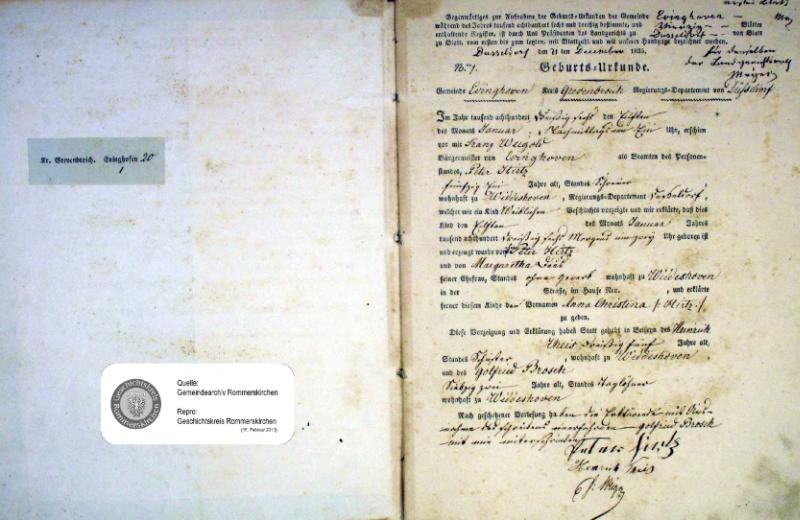 Kr. Grevenbroich. Evinghofen 20
1
Geschichtskreis Rommerskirchen
Quelle:
Gemeindearchiv Rommerskirchen
Repro:
Geschichtskreis Rommerskirchen
Gegenwärtiges zur Aufnahme der Geburts-Urkunden der Gemeinde Evinghoven
während des Jahres tausend achthundert sechs und dreißig bestimmte, und
enthaltende Register, ist durch Uns Präsidenten des Landgerichts zu Düsseldorf von Blatt
zu Blatt, vom ersten bis zum letzten, mit Blattzahl und mit unserm Handzuge bezeichnet worden.
Düsseldorf den 21 December 1835.
für denselben
der Landgerichtsrath
Nro. 1. Geburts-Urkunde.
Gemeinde Evinghoven Kreis Grevenbroich Regierungs-Departement von Düsseldorf
Im Jahr tausend achthundert dreißig sechs den Eilften
des Monats Januar Nachmittags um Ein Uhr, erschien
vor mir Franz Weigold
Bürgermeister von Evinghoven als Beamten des Personen-
standes, Peter Hertz
fünfzig Jahre alt, Standes
wohnhaft zu Widdeshoven, Regierungs-Departement Düsseldorf,
welcher mir ein Kind Weiblichen Geschlechts vorzeigte und mir erklärte, daß dies
Kind den Eilften des Monats Januar Jahres
tausend achthundert dreißig sechs Morgens um Uhr geboren ist
und erzeugt wurde von Peter Hertz
und von Margaretha
seiner Ehefrau, Standes ohne Gewerb wohnhaft zu Widdeshoven
in der Straße, im Hause Nro. und erklärte
ferner diesem Kinde den Vornamen Anna Christina /: Hertz :/
zu geben.
Diese Vorzeigung und Erklärung haben Statt gehabt in Beisein des Heinrich
Theis dreißig fünf Jahre alt,
Standes Schuster, wohnhaft zu Widdeshoven,
und des Gotfried Brosch
siebzig zwei Jahre alt, Standes Taglöhner
wohnhaft zu Widdeshoven
Nach geschehener Vorlesung haben die mit
des Schreibens unerfahrenen Gotfried Brosch
mit mir unterschrieben